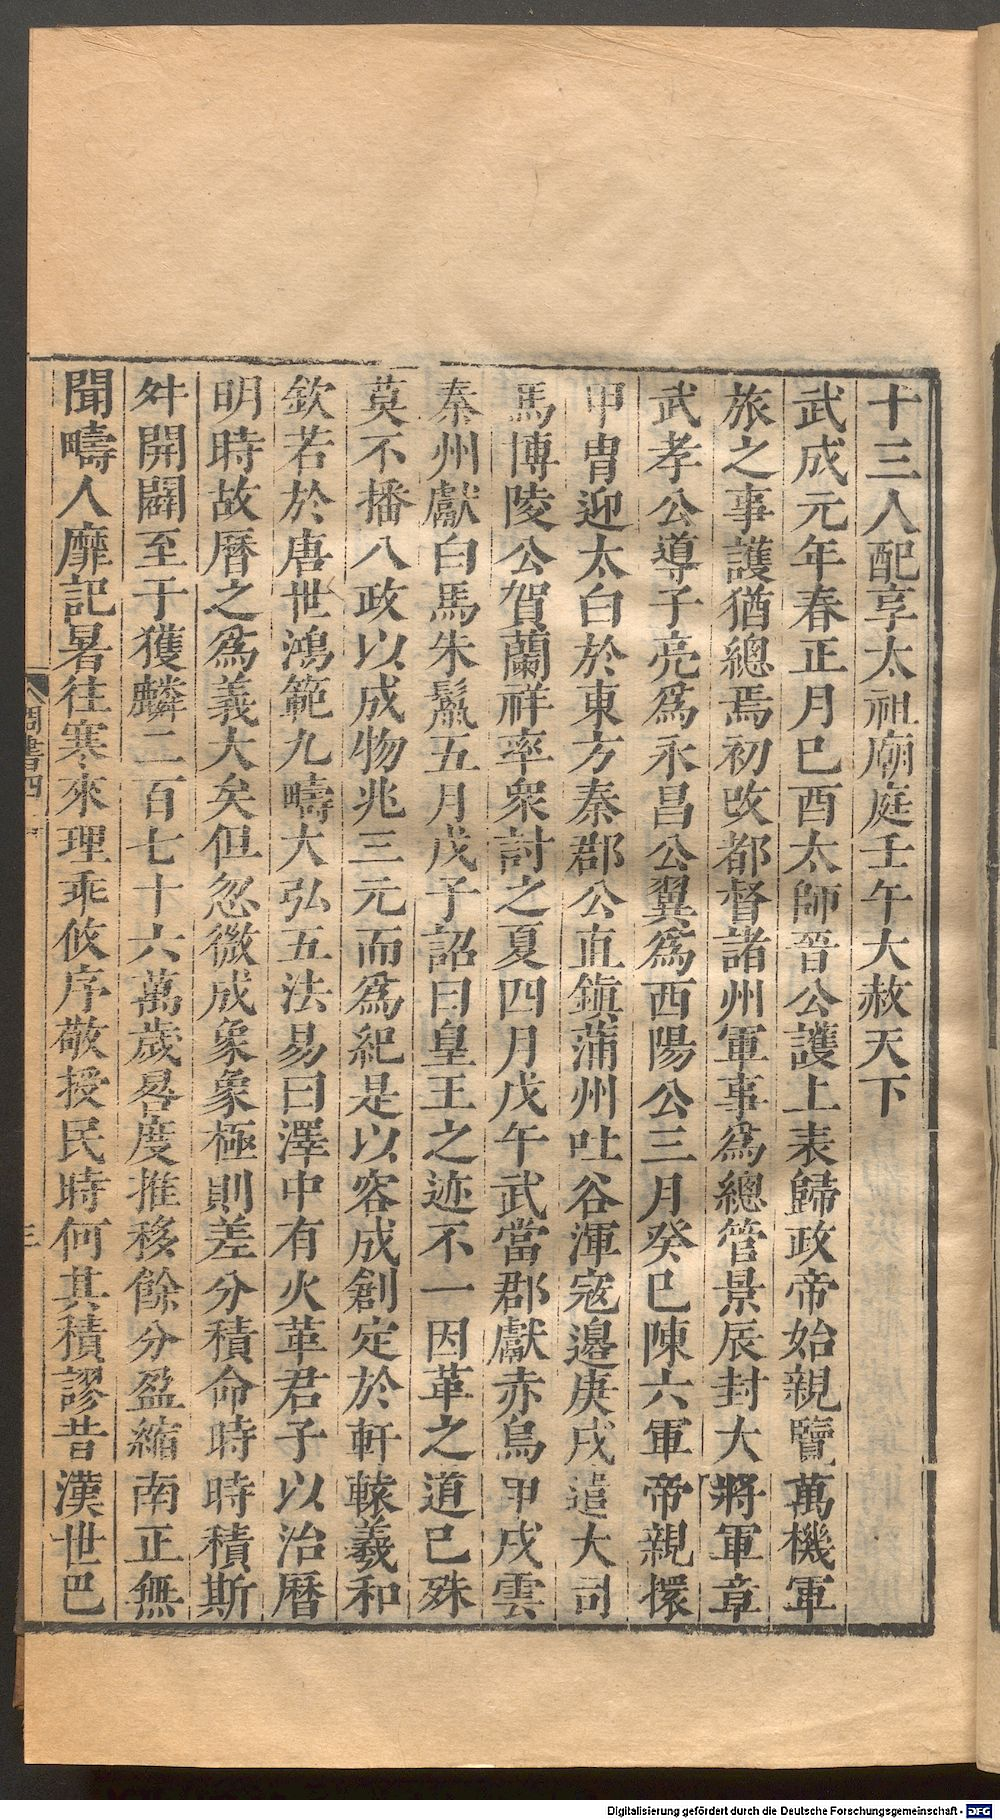 十三人配享太祖廟庭壬午大赦天下
武成元年春正月巳酉太師晉公護上表歸政帝始親覽萬機軍
旅之事護猶總焉初改都督諸州軍事爲總管景辰封大將軍章
武孝公導子亮爲永昌公翼爲西陽公三月癸巳陳六軍帝親擐
甲冑迎太白於東方秦郡公直鎮蒲州吐谷渾寇邊庚戌遣大司
馬博陵公賀蘭祥率衆討之夏四月戊午武當郡獻赤烏甲戌雲
秦州獻白馬朱鬣五月戊子詔曰皇王之迹不一因革之道巳殊
莫不播八政以成物兆三元而爲紀是以容成創定於軒轅羲和
欽若於唐世鴻範九疇大弘五法易曰澤中有火革君子以治曆
明時故曆之爲義大矣但忽微成象象極則差分積命時時積斯
舛開闢至于獲麟二百七十六萬歲晷度推移餘分盈縮南正無
聞疇人靡記暑往寒來理乖攸序敬授民時何其積謬昔漢世巴
周書四
三
Digitalisierung gefördert durch die Deutsche Forschungsgemeinschaft - DFG